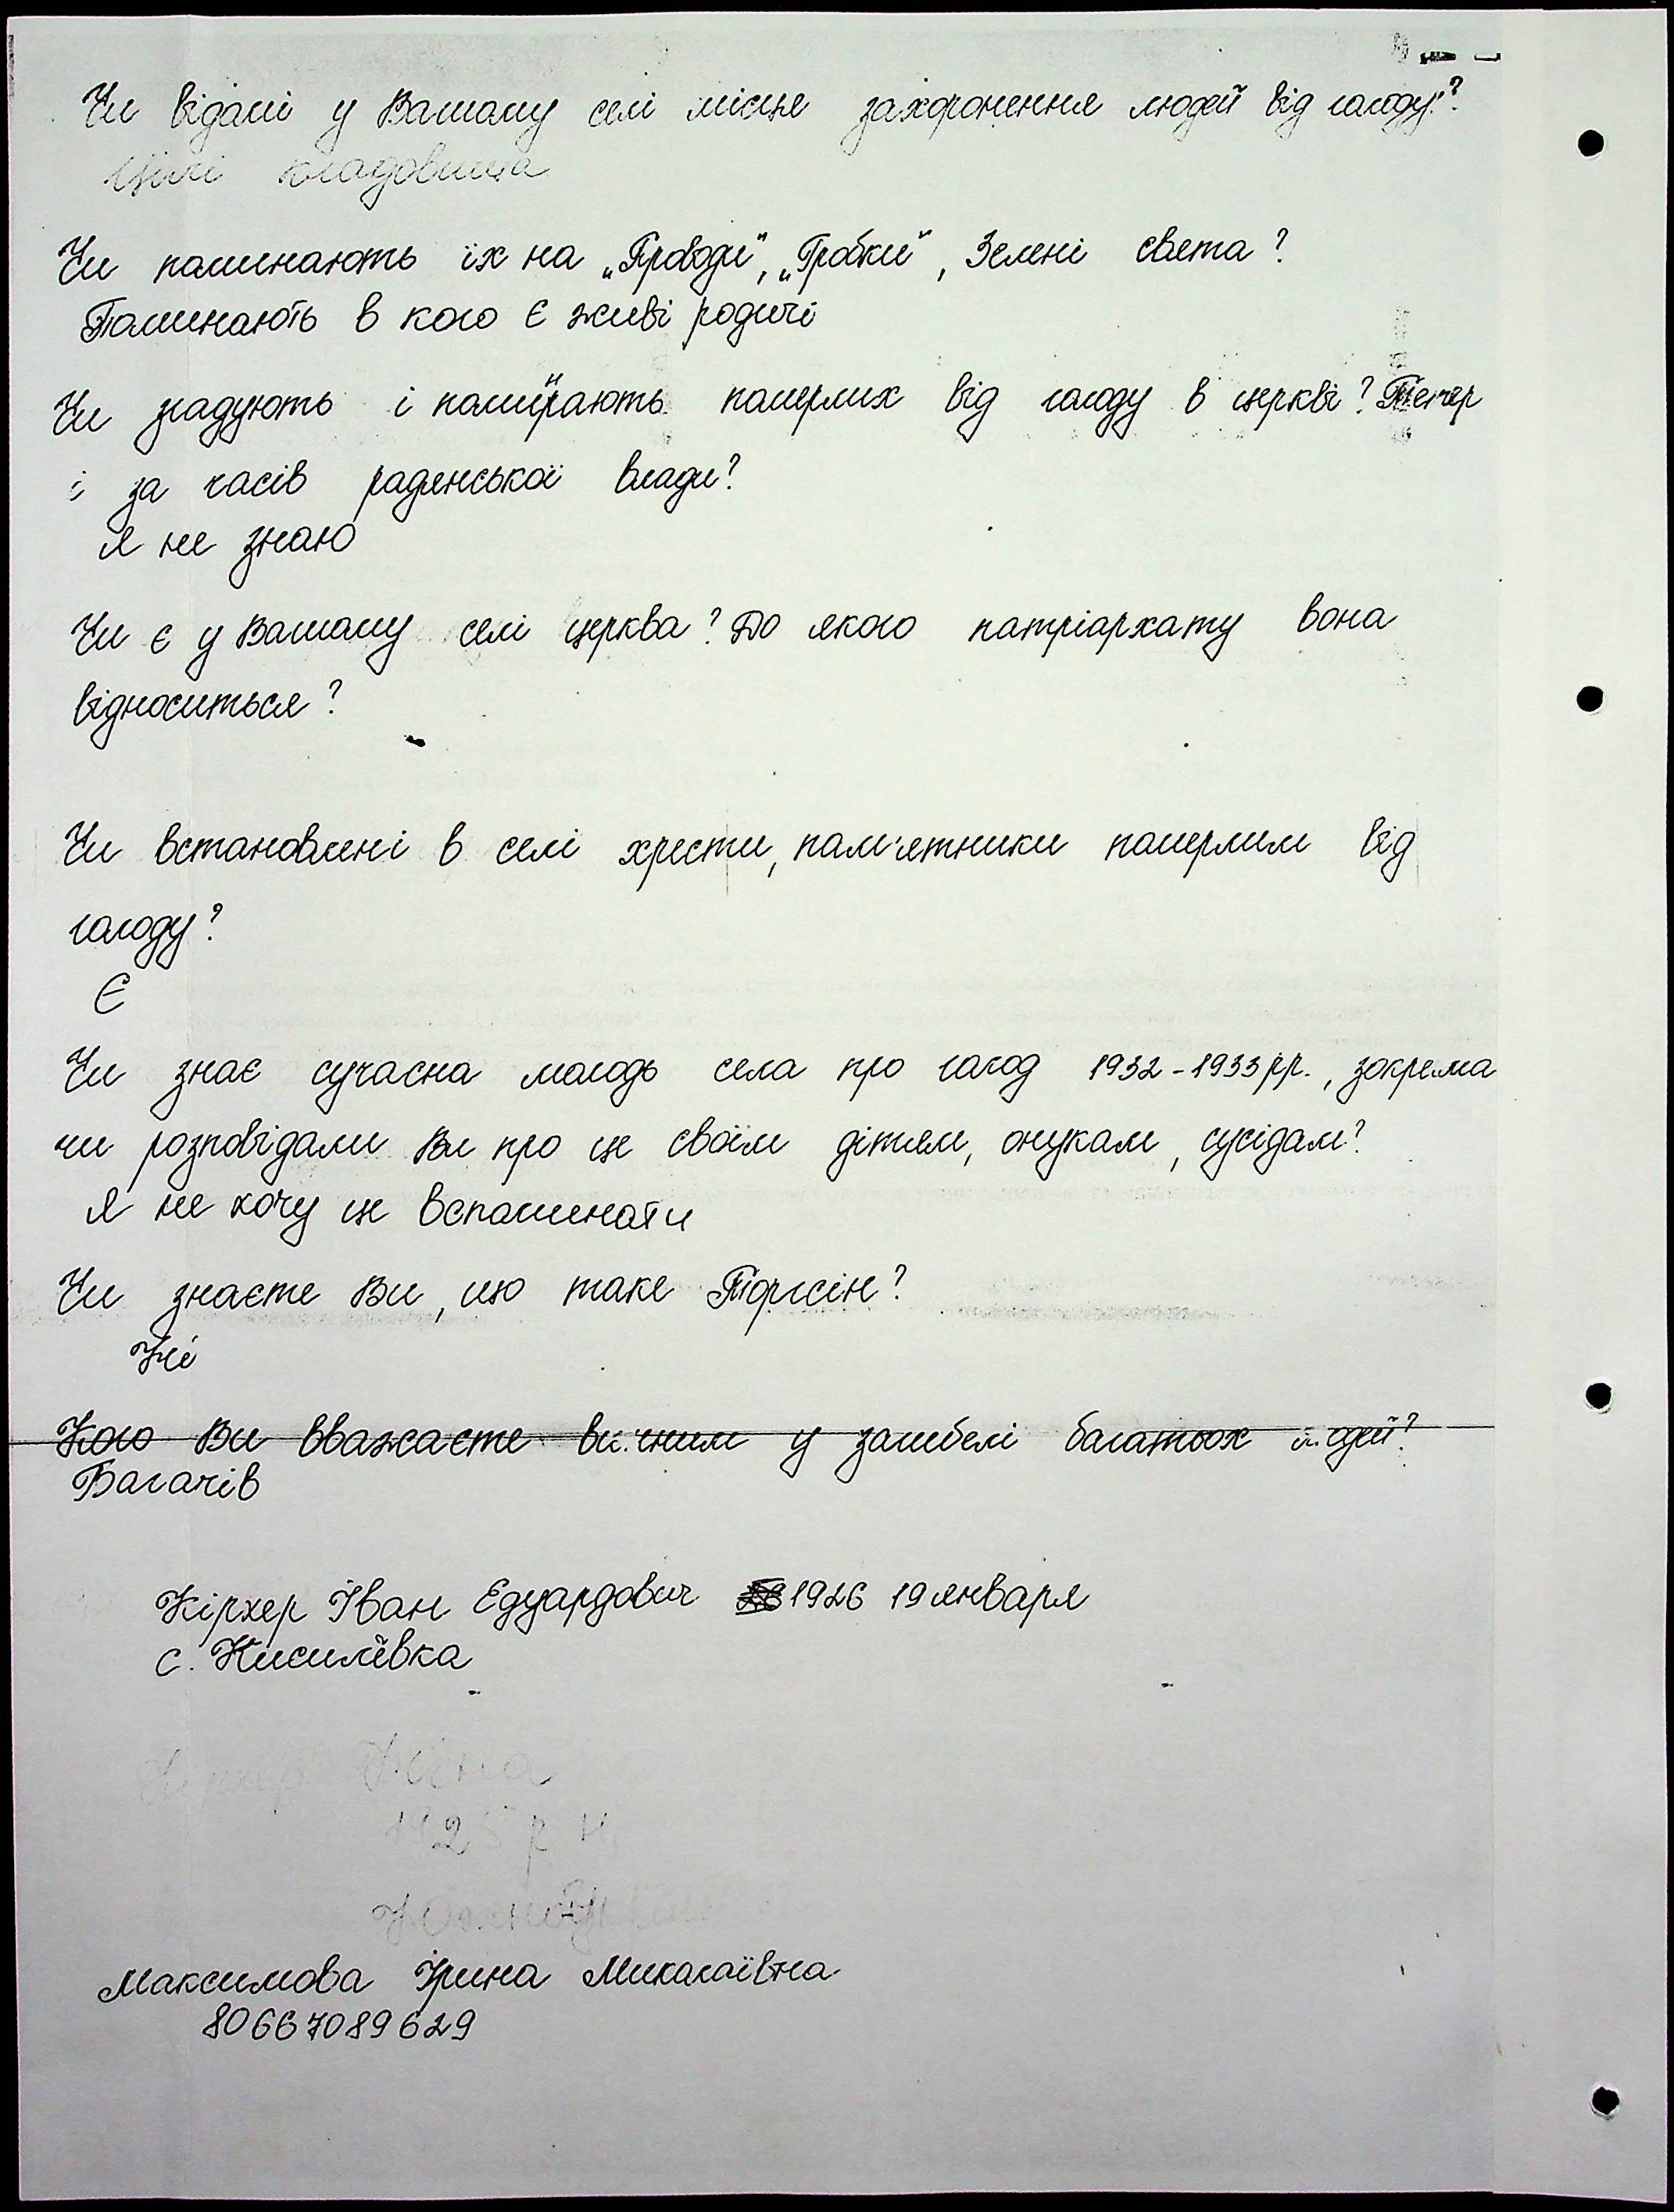 Чи відомі у Вашому селі місце захоронення людей від голоду?
Цілі кладовища
Чи поминають їх на „Проводи", „Гробки", Зелені свята?
Поминають в кого є живі родичі
Чи згадують і поминають померлих від голоду в церкві? Тепер
і за часів радянської влади?
Я не знаю
Чи є у Вашому селі церква? До якого патріархату вона
відноситься?
Чи встановлені в селі хрести, пам'ятники померлим від
голоду?
Є
Чи знає сучасна молодь села про голод 1932-1933 рр., зокрема
чи розповідали Ви про це своїм дітям, онукам, сусідам?
Я не хочу це вспоминати
Чи знаєте Ви, що таке Торгсін?
Ні
Кого Ви вважаєте винним у загибелі багатьох людей?
Багачів
Кірхер Іван Едуардович 1926 19 января
с. Кисилівка
Ніна
Максимова Ірина Миколаївна
80667089629